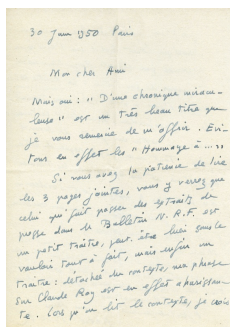 30 Juin 1950 Paris
Mon cher Ami
Mais oui : "D'une chronique miracu-
leuse" est un très beau titre que
je vous remercie de m'offrir. Evi-
tons en effet les "Hommage à ..."
Si vous avez la patience de lire
les 3 pages jointes, vous y verrez que
celui qui fait passer des extraits de
presse dans le Bulletin N.R.F. est
un petit traître, peut-être sans le
vouloir tout à fait, mais enfin un
traître : détachée du contexte, ma phrase
sur Claude Roy est en effet ahurissan-
te. Lors qu'on lit le contexte, je crois